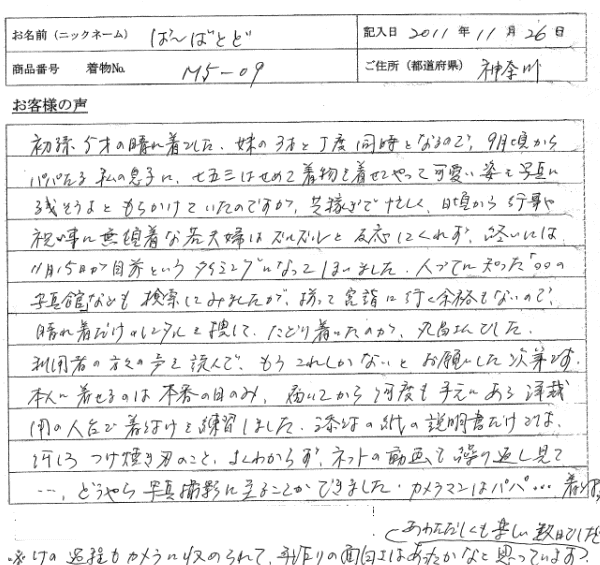 お名前（ニックネーム） ばーばとど 記入日 2011 年 11 月 26 日
商品番号 着物No. M5-09 ご住所（都道府県） 神奈川
お客様の声
初孫、5才の晴れ着でした。妹の3才と丁度同時となるので、9月頃から
パパたる私の息子に、七五三はせめて着物を着せてやって可愛い姿を写真に
残そうよともちかけていたのですが、共稼ぎで忙しく、日頃から行事や
祝い事に無頓着な若夫婦はズルズルと反応してくれず、終いには
11月15日が目前というタイミングになってしまいました。人づてに知った「○○の
写真館」なども検索してみましたが、揃って宮詣に行く余裕もないので、
晴れ着だけのレンタルを捜して、たどり着いたのが、丸昌さんでした。
利用者の方々の声を読んで、もうこれしかないとお願いした次第です。
本人に着せるのは本番の日のみ、届いてから何度も手元にある洋裁
用の人台で着付けを練習しました。添付の紙の説明書だけでは、
何しろつけ焼き刃のこと、よくわからず、ネットの動画を繰り返し見て
…、どうやら写真撮影に至ることができました。カメラマンはパパ…着
（あわただしくも楽しい数日でした
付けの過程もカメラに収められて、手作りの面白さはあったかなと思っています。